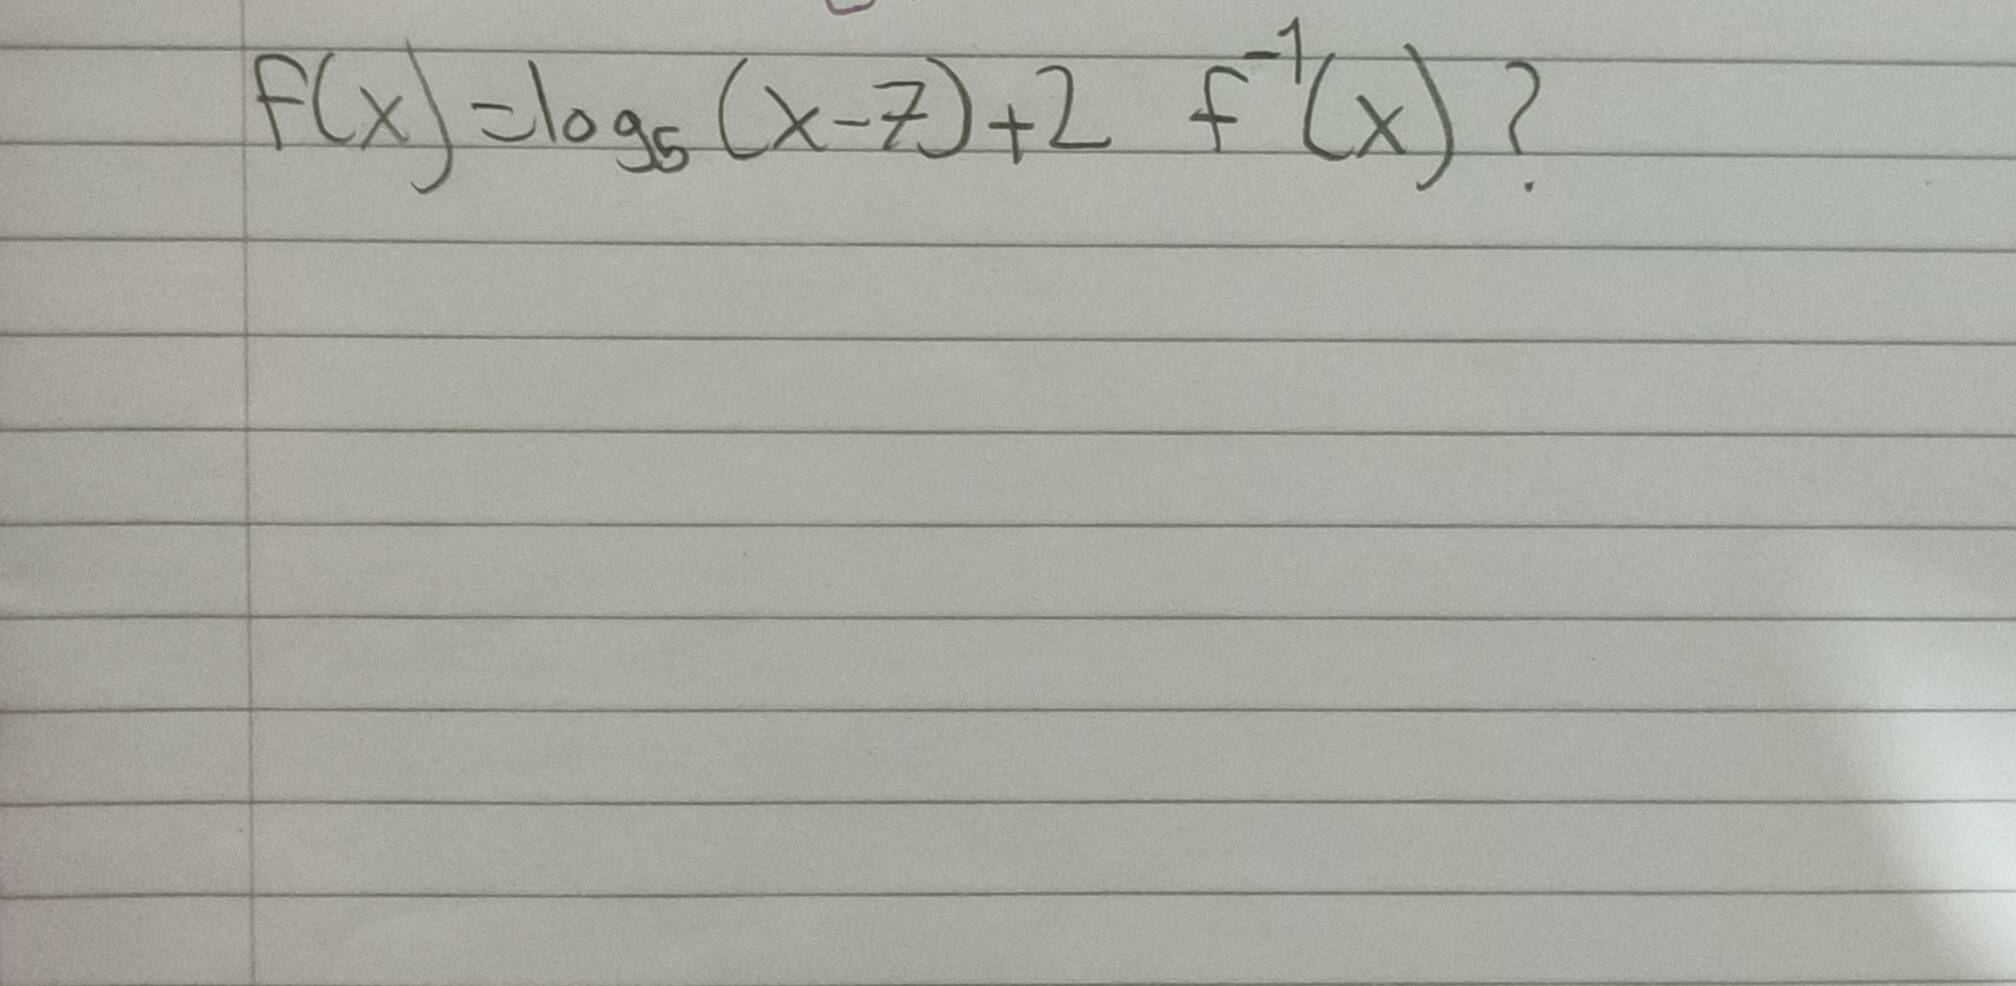 f(x)=log₅(x-7)+2 f⁻¹(x)?